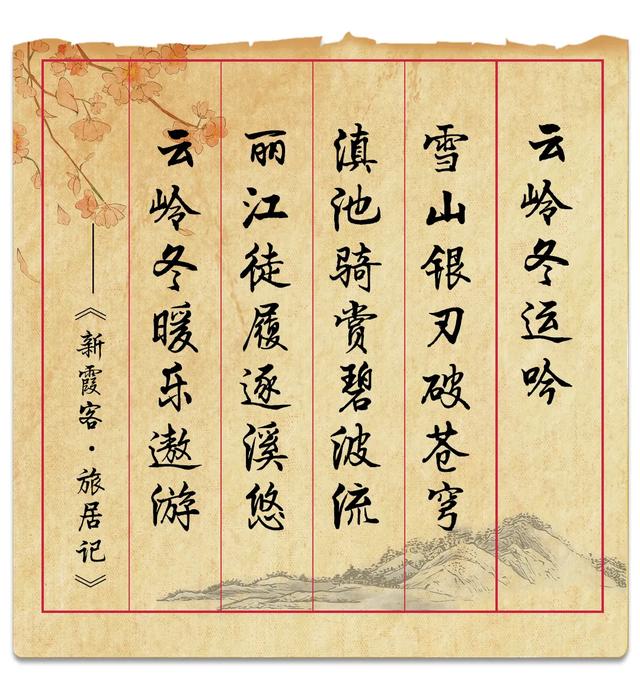 云岭冬运吟
雪山银刃破苍穹
滇池骑赏碧波流
丽江徒履逐溪悠
云岭冬暖乐遨游
——《新霞客·旅居记》